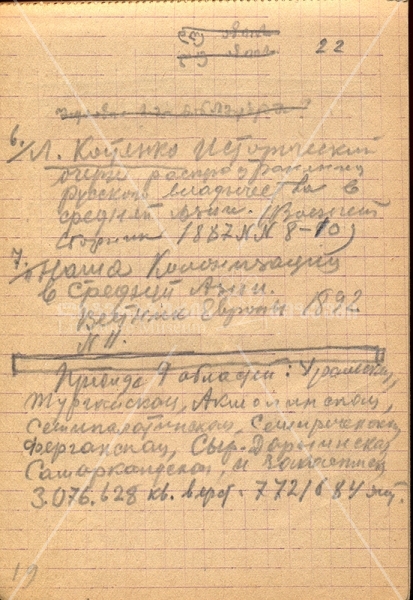 22
6/ Л. Костенко Исторический
очерк распространения
Русского владычества в
средней Азии. (Военный
Сборник 1887 № № 8-10)
7/ Наша Колонизация
в Средней Азии.
Вестник Европы 1892.
№ 11.
9 области: Уральская,
Тургайской, Акмолинской,
Семипалатинской, Семиреченской
Ферганской, Сыр-Дарьинской
Самаркандской и Закаспийск
3.076.628 кв. верст. 7721684 жит.
19